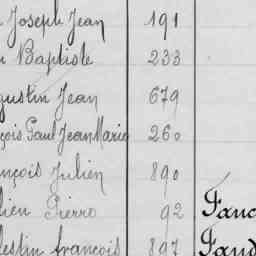 Joseph Jean 191
Baptiste 233
gustin Jean 679
çois Paul Jean Marie 260
nçois Julien 890
lien Pierre 92 Fauc
lestin françois 897 Faud